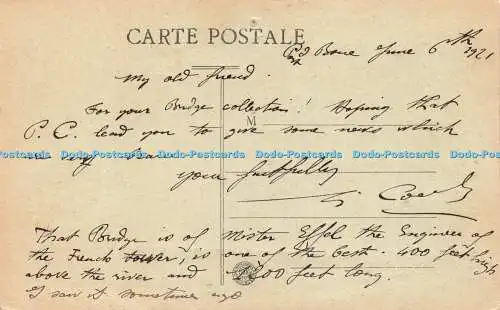 CARTE POSTALE
Bone June 6th
1921
My old friend
For your Bridge collection! Hoping that
M
P.C. lead you to give some news which
Dodo-Postcards Dodo-Postcards Dodo-Postcards Dodo-Postcards Dodo-Postcards
your faithfully
That Bridge is of Mister Effel the Engineer of
the French tower, is one of the best. 400 feet high
above the river and 1200 feet long.
I saw it sometime ago